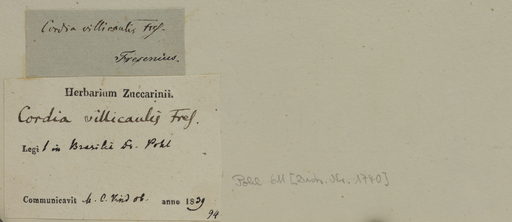 Cordia villicaulis Fres.
Fresenius.
Herbarium Zuccarinii.
Cordia villicaulis Fres.
Legi in Brasilia Dr. Pohl
Communicavit M. C. Vindob. anno 1839
94
Pohl 611 [ 1770]